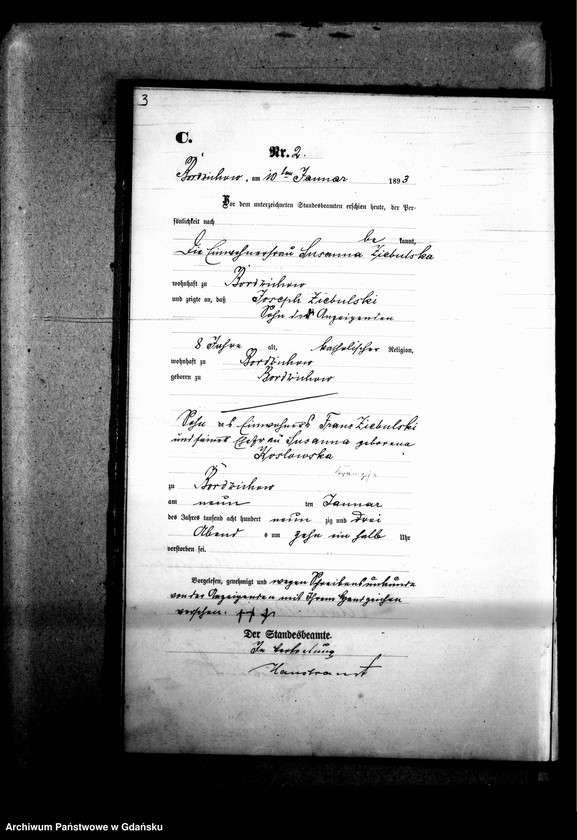 3
C.
Nr. 2.
Bordzichow, am 10ten Januar 1893
Vor dem unterzeichneten Standesbeamten erschien heute, der Per-
sönlichkeit nach
be kannt,
die Einwohnerfrau Susanna Ziebulska
wohnhaft zu Bordzichow
und zeigte an, daß Joseph Ziebulski
Sohn der Anzeigenden
8 Jahre alt, katholischer Religion,
wohnhaft zu Bordzichow
geboren zu Bordzichow
Sohn des Einwohners Franz Ziebulski
und seiner Ehefrau Susanna geborena
Koslowska
zu Bordzichow
am neun ten Januar
des Jahres tausend acht hundert neun zig und drei
Abend s um zehn ein halb Uhr
verstorben sei.
Vorgelesen, genehmigt und wegen Schreibensunkunde
von der Anzeigenden mit Ihrem Handzeichen
versehen. +++
Der Standesbeamte.
In Vertretung
Archiwum Państwowe w Gdańsku